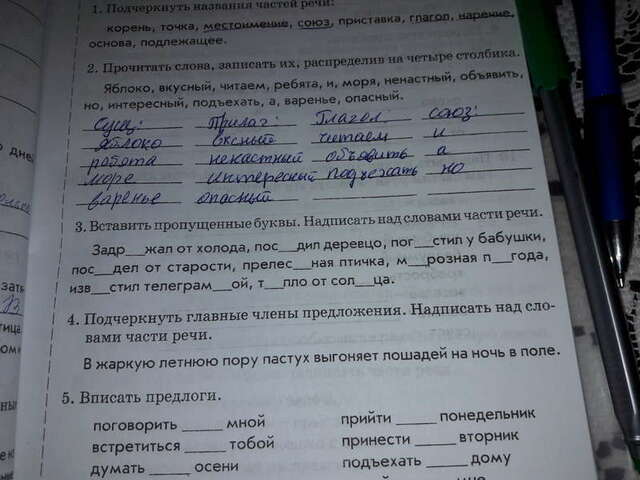 1. Подчеркнуть названия частей речи:
корень, точка, местоимение, союз, приставка, глагол, наречие,
основа, подлежащее.
2. Прочитать слова, записать их, распределив на четыре столбика.
Яблоко, вкусный, читаем, ребята, и, моря, ненастный, объявить,
но, интересный, подъехать, а, варенье, опасный.
Сущ: Прилаг: Глагол союз:
яблоко вксный читаем и
работа ненастний объявить а
море интересный подъехать но
варенье опасный
3. Вставить пропущенные буквы. Надписать над словами части речи.
Задр__жал от холода, пос__дил деревцо, пог__стил у бабушки,
пос__дел от старости, прелес__ная птичка, м__розная п__года,
изв__стил телеграм__ой, т__пло от сол__ца.
4. Подчеркнуть главные члены предложения. Надписать над сло-
вами части речи.
В жаркую летнюю пору пастух выгоняет лошадей на ночь в поле.
5. Вписать предлоги.
поговорить ____ мной прийти ____ понедельник
встретиться ____ тобой принести ____ вторник
думать ____ осени подъехать ____ дому